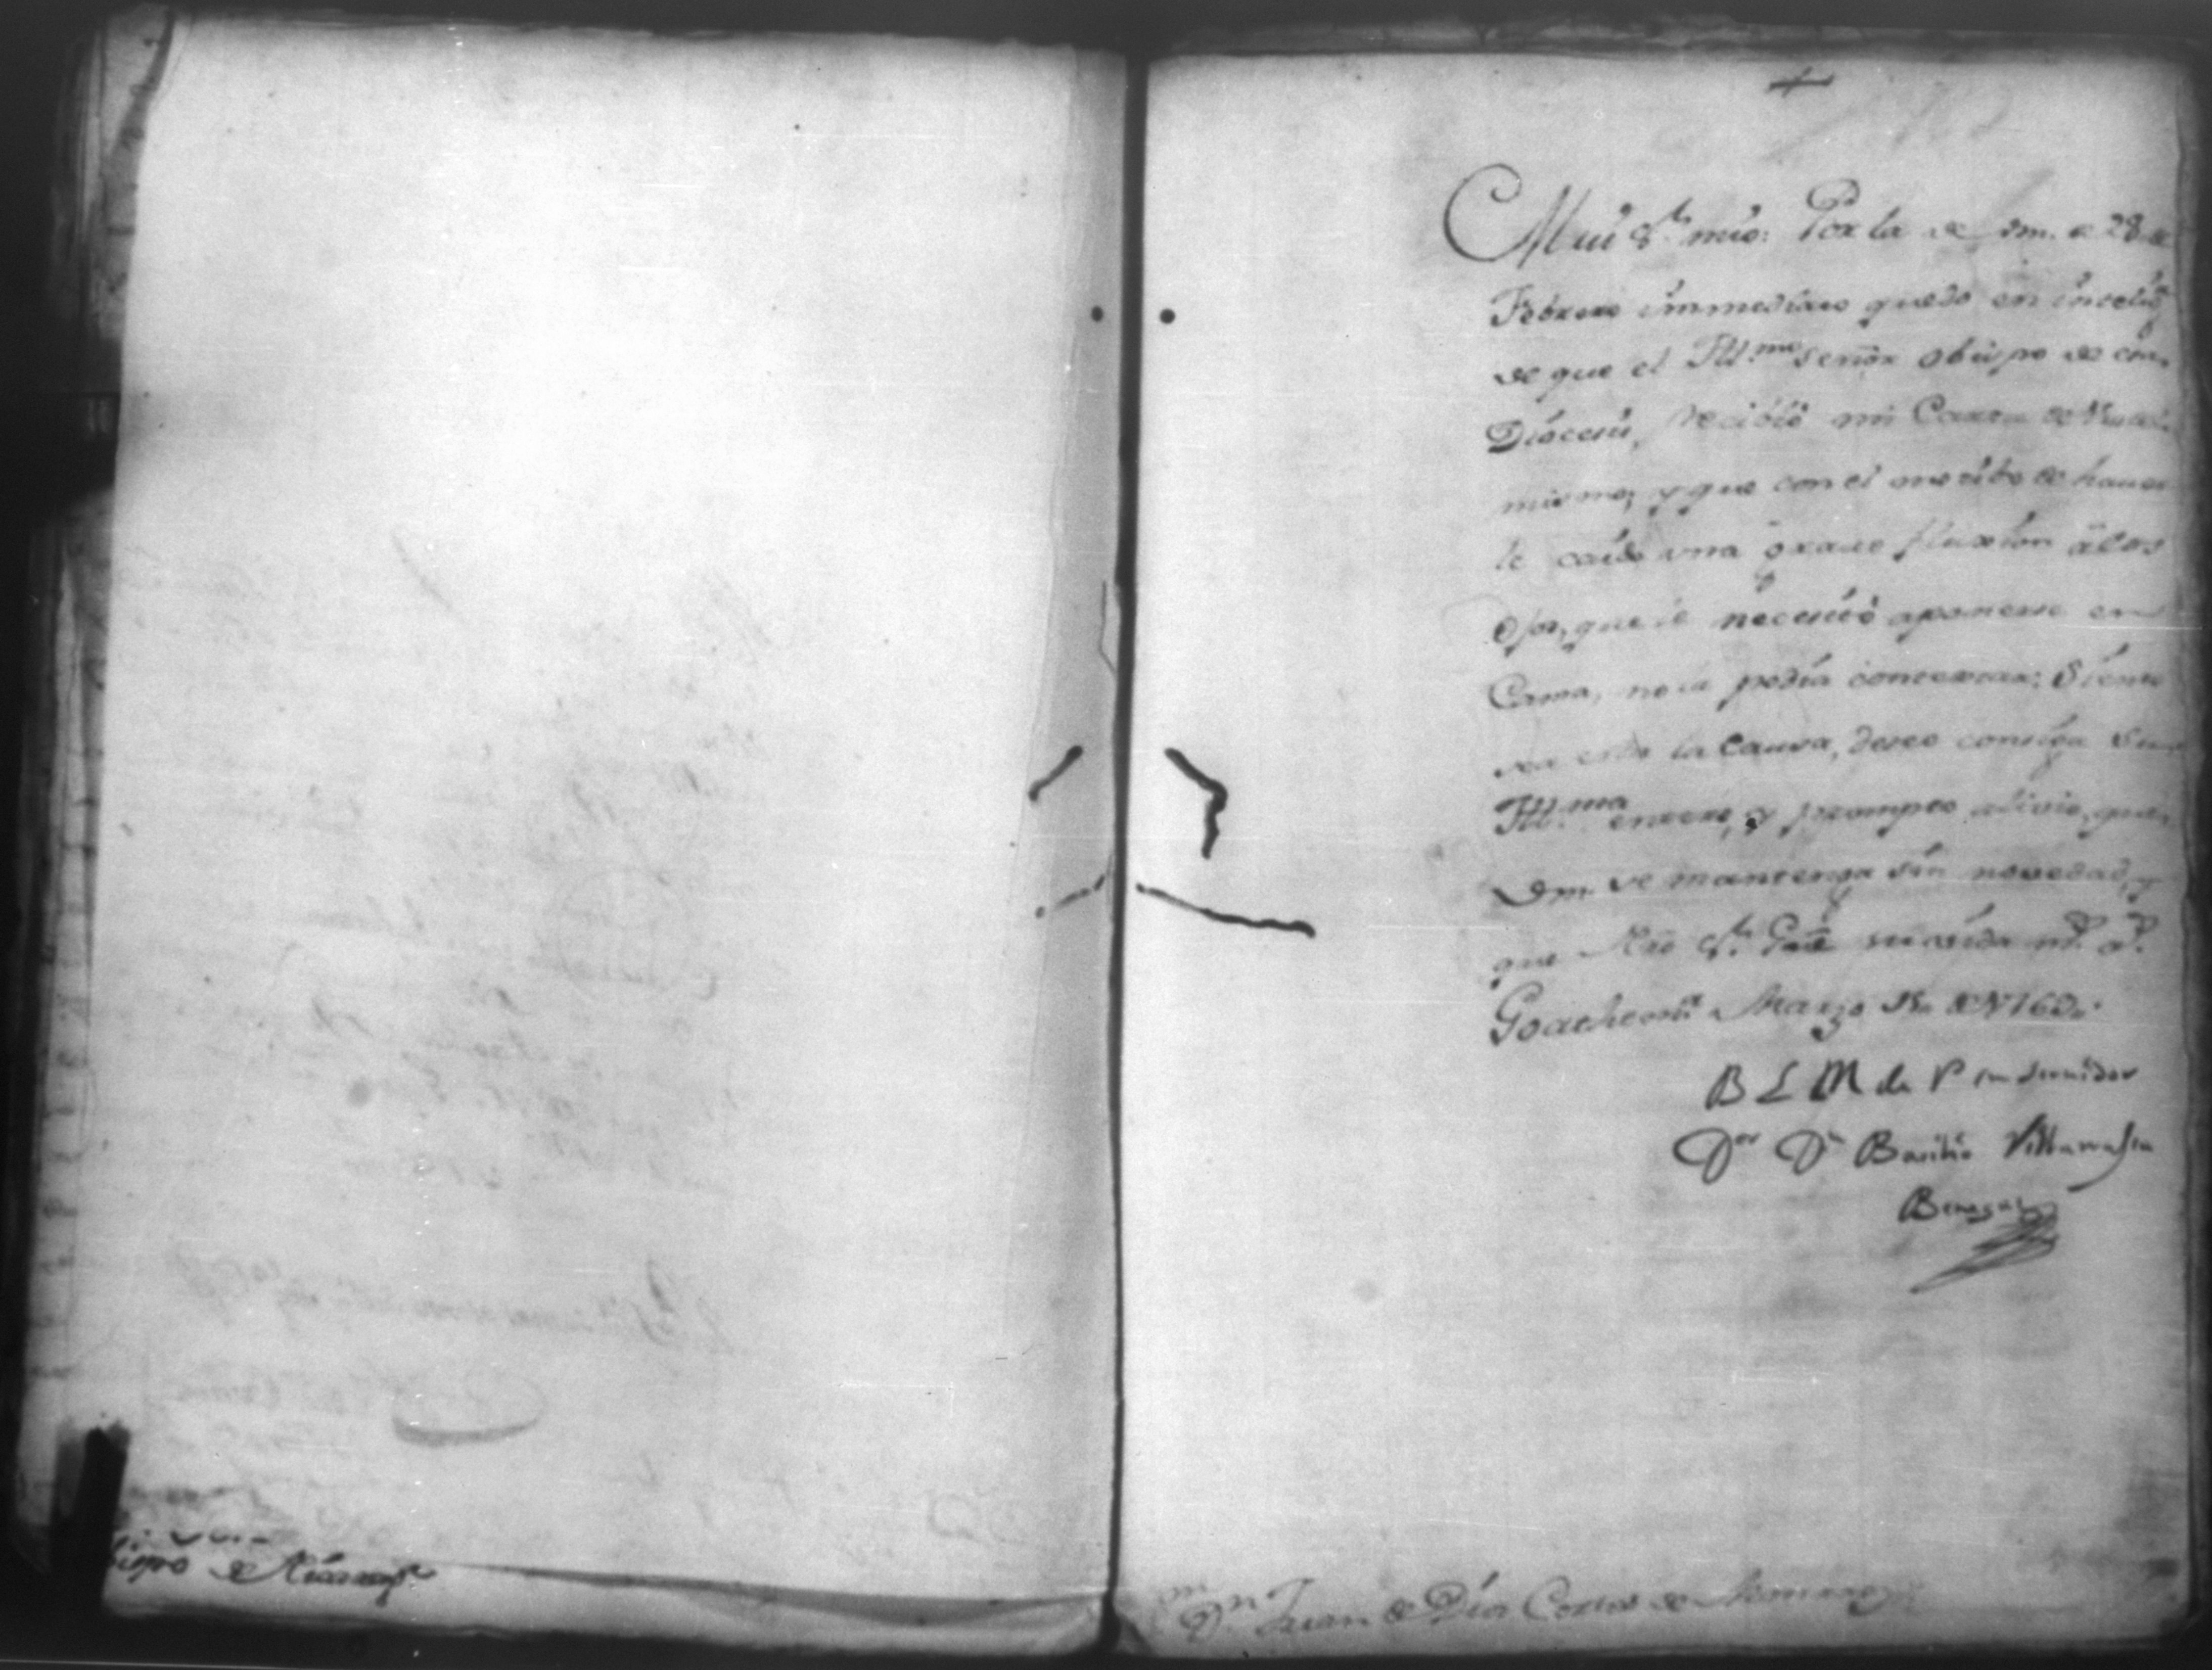 +
Mui S.r mio: Por la de Vm. de 28 de
Febrero immediato quedo en intelig.
de que el Ill.mo señor obispo de esa
Diócesis, recibió mi Carta de
mismo; y que con el merito de haver
le caido una graue fluxion â los
Ojos, que le necesitó aponerse en
Cama, no la podia contextar; Siento
sea esta la causa, deseo consiga Su
Ill.ma entero, y prompto alivio, que
Vm. se mantenga sin novedad, y
que Nro S.r Gue su vida m.s a.s
Goathem.a Marzo de 1762.
B L M de V su servidor
D.or D.n Basilio Villarrasa
Benegas
D.n Juan de Dios Cortes de
bispo de Nicarag.a